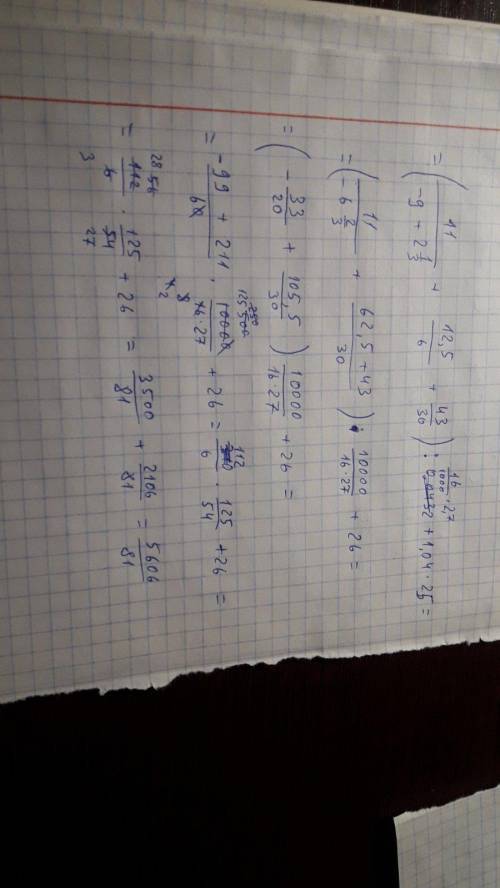 = ( 11 / (-9 + 2 1/3) + 12,5 / 6 + 43 / 30 ) : 16 / 1000 · 2,7 + 1,04 · 25 =
= ( 11 / (-6 2/3) + (62,5 + 43) / 30 ) · 10000 / (16 · 27) + 26 =
= ( - 33/20 + 105,5 / 30 ) 10000 / (16 · 27) + 26 =
= (-99 + 211) / 60 · 10000 / (16 · 27) + 26 = 112 / 6 · 125 / 54 + 26 =
= 112 / 6 · 125 / 54 + 26 = 3500 / 81 + 2106 / 81 = 5606 / 81
28 56
3 27